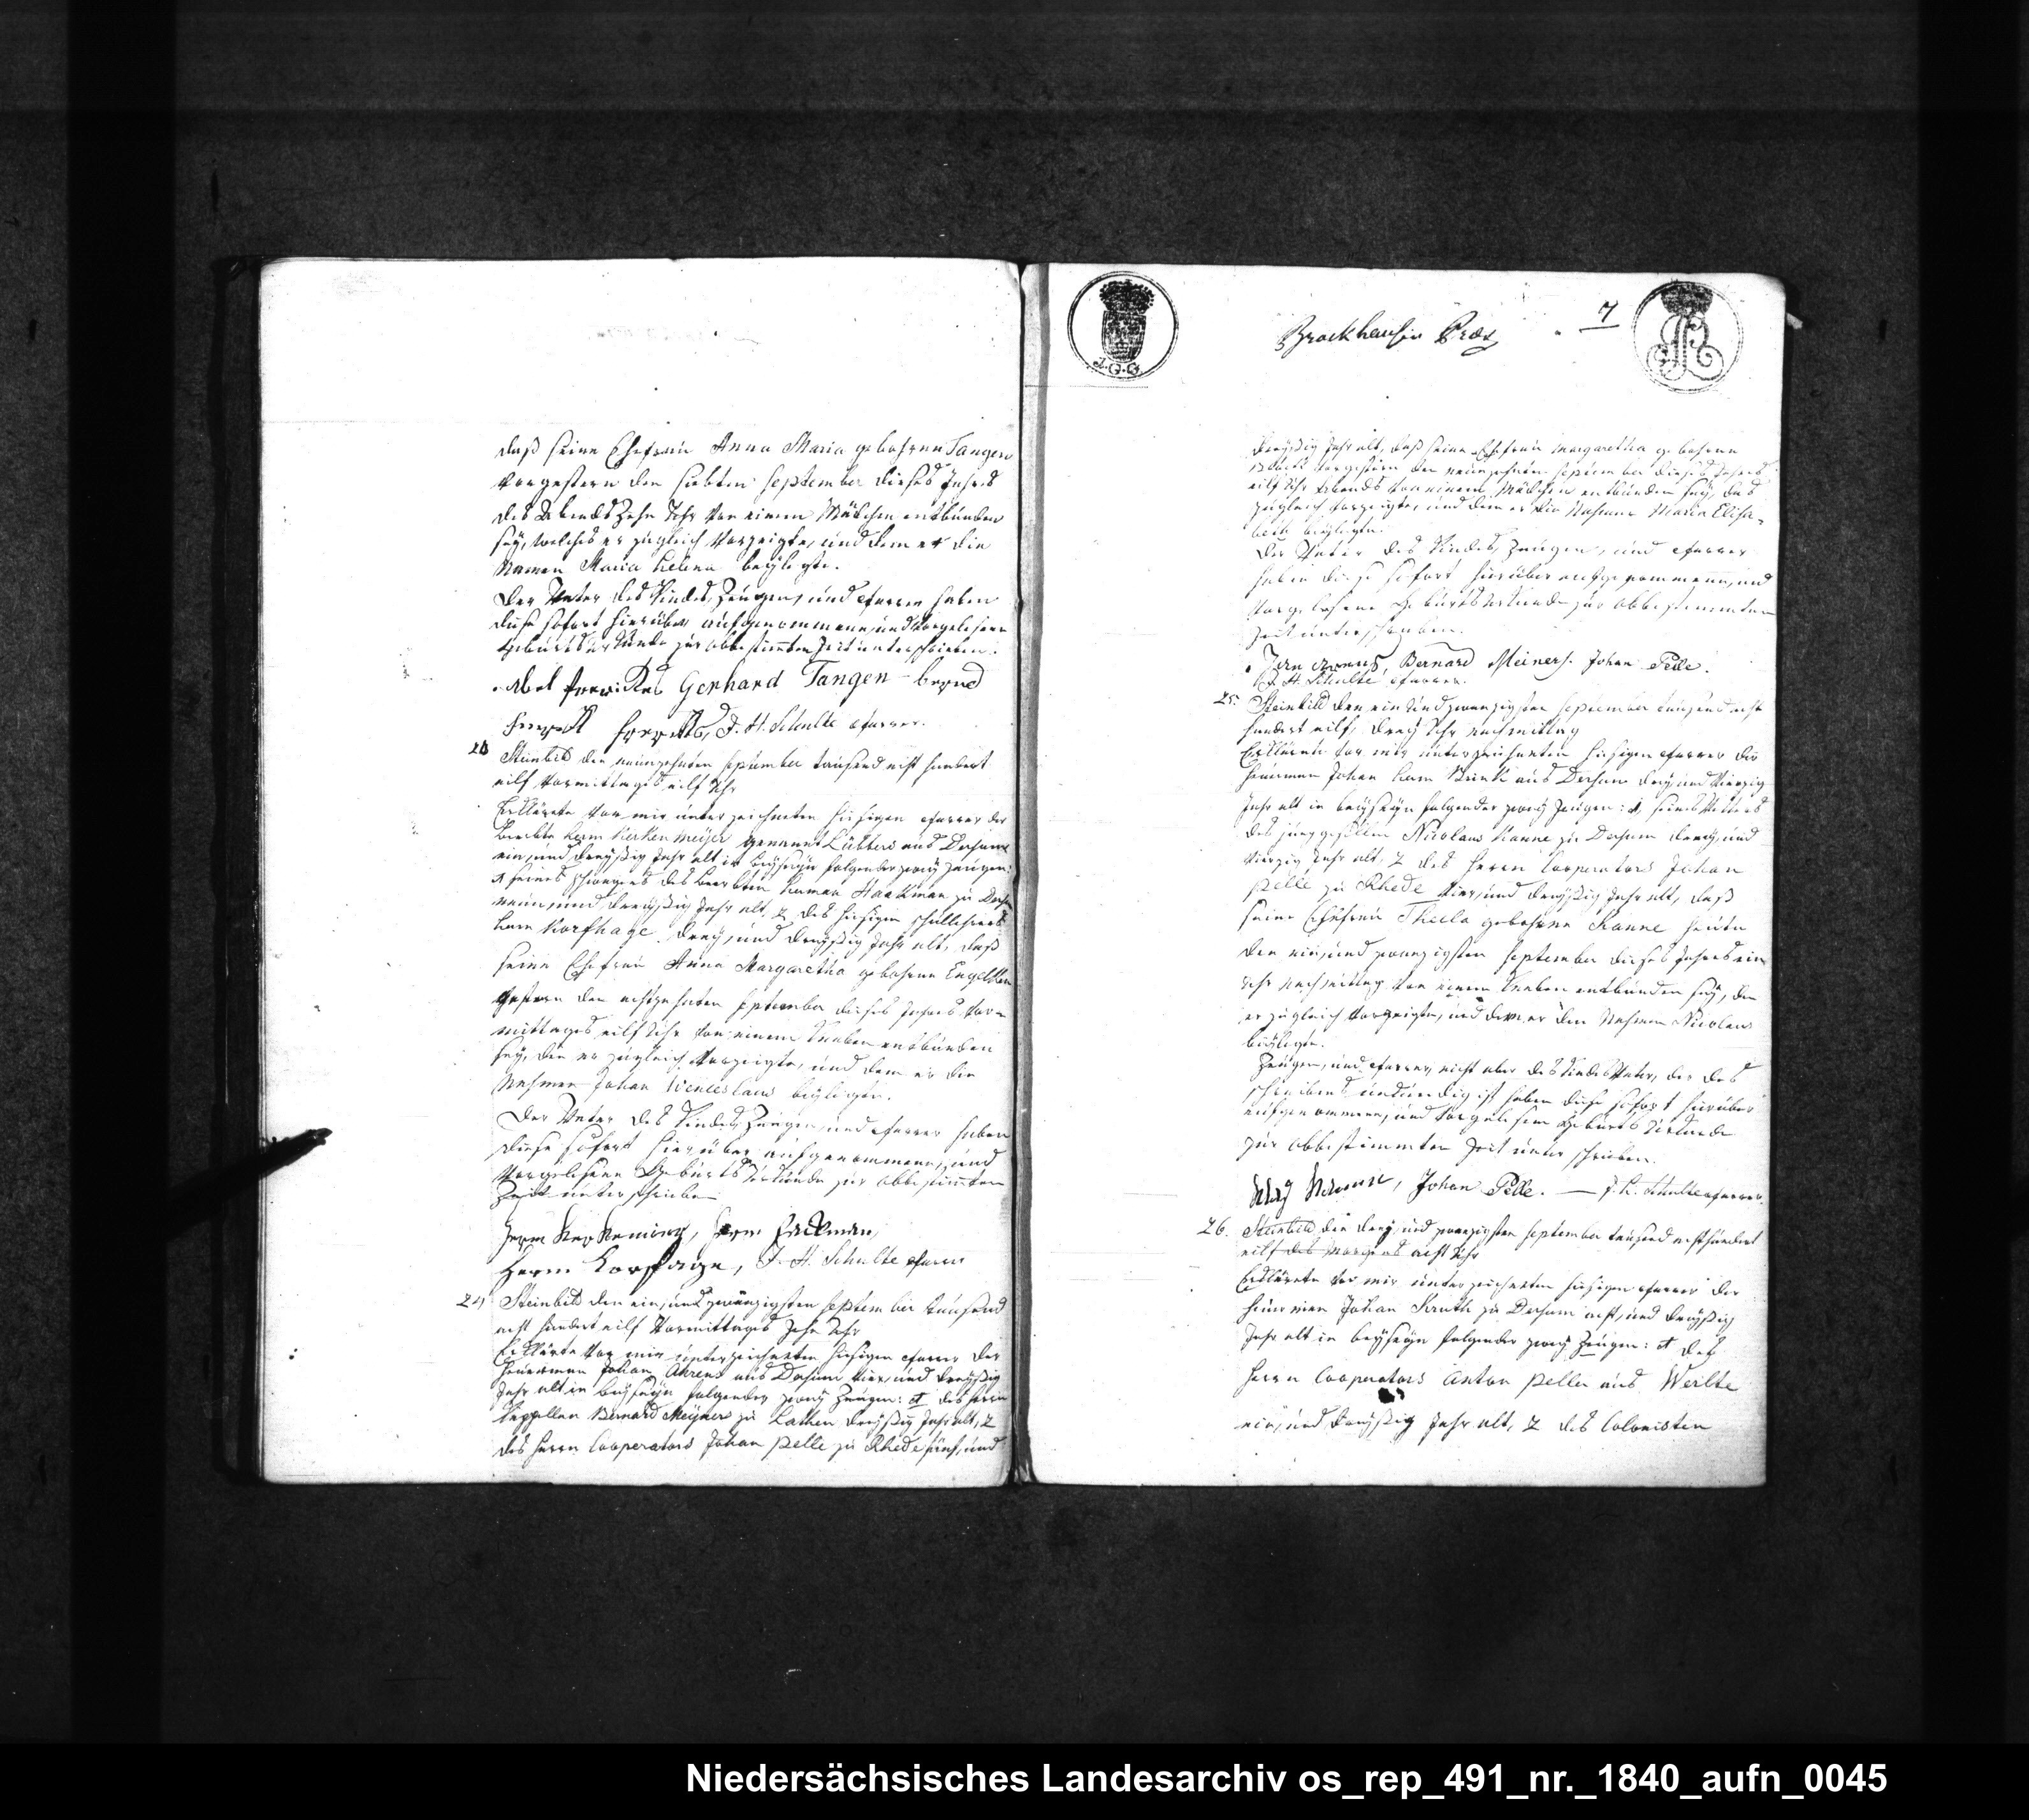 daß seine Ehefrau Anna Maria gebohrne Tangen
vorgestern den siebten September dieses Jahrs
des Abends zehn Uhr von einem Mädchen entbunden
sey, welches er zugleich vorzeigte, und dem er die
Namen Maria Helena beylegte.
Der Vater des Kindes, Zeugen, und Pfarrer haben
diese sofort hierüber aufgenommene, und vorgelesene
Geburts Urkunde zur obbestimten Zeit unterschrieben.
Abel Gerhard Tangen bernd
J. H. Schulte Pfarrer.
Steinbild den neunzehnten September tausend acht hundert
eilf Vormittags eilf Uhr
Erklärete vor mir unterzeichneten hiesigen Pfarrer der
Beerbte Herm Kerkenmeyer genannt Lübbers aus Dersum
ein, und dreyßig Jahr alt in beyseyn folgender zwey Zeugen:
1 seines Schwagers des Beerbten Herman Haakman zu
neun und dreyßig Jahr alt, 2 des hiesigen Schullehrers
Herm Korfhage drey, und dreyßig Jahr alt, daß
seine Ehefrau Anna Margaretha gebohrne Engelken
gestern den achtzehnten September dieses Jahrs Vor-
mittages eilf Uhr von einem Knaben entbunden
sey, den er zugleich vorzeigte, und dem er die
Nahmen Johan Wenceslaus beylegte.
Der Vater des Kindes, Zeugen, und Pfarrer haben
diese sofort hierüber aufgenommene, und
vorgelesene Geburts Urkunde zur obbestimten
Zeit unterschrieben
Herm Kerkemeier, Herm Hackman,
Herm Korfhage, J. H. Schulte Pfarrer
24 Steinbild den ein, und zwanzigsten September tausend
acht hundert eilf Vormittags zehn Uhr
Erklärte vor mir unterzeichneten hiesigen Pfarrer der
Heuerman Johan Ahrens aus Dersum vier, und dreyßig
Jahr alt in beyseyn folgender zwey Zeugen: 1 des Herrn
Kappellan Bernard Meyners zu Lathen dreyßig Jahr alt, 2
des Herrn Cooperators Johan Pelle zu Rhede fünf, und
J.G.G.
Brockhausen Præs
7
dreyßig Jahr alt, daß seine Ehefrau Margaretha gebohrne
vorgestern den neunzehnten September dieses Jahrs
eilf Uhr Abends von einem Mädchen entbunden sey, das
zugleich vorzeigte, und dem er die Nahmen Maria Elisa-
beth beylegte.
Der Vater des Kindes, Zeugen, und Pfarrer
haben diese sofort hierüber aufgenommene, und
vorgelesene Geburts Urkunde zur obbestimmten
Zeit unterschrieben.
Jan Arens, Bernard Meiners. Johan Pelle.
J. H. Schulte Pfarrer.
25. Steinbild den ein und zwanzigsten September tausend acht
hundert eilf, drey Uhr nachmittag
Erklärete vor mir unterzeichneten hiesigen Pfarrer der
Heuerman Johan Herm Brink aus Dersum drey, und vierzig
Jahr alt in beyseyn folgender zwey Zeugen: 1, seines Vetters
des junggesellen Nicolaus Kanne zu Dersum drey, und
vierzig Jahr alt, 2 des Herrn Cooperators Johan
Pelle zu Rhede vier, und dreyßig Jahr alt, daß
seine Ehefrau Thecla gebohrne Kanne heute
den ein, und zwanzigsten September dieses Jahrs ein
Uhr nachmittag von einem Knaben entbunden sey, den
er zugleich vorzeigte, und dem er den Nahmen Nicolaus
beylegte.
Zeugen, und Pfarrer, nicht aber des Kindes Vater, der des
schreibens unkundig ist haben diese sofort hierüber
aufgenommene, und vorgelesene Geburts Urkunde
zur obbestimmten Zeit unterschrieben.
Johan Pelle. — J. H. Schulte Pfarrer.
26. Steinbild den drey, und zwanzigsten September tausend achthundert
eilf des Morgens acht Uhr
Erklärete vor mir unterzeichneten hiesigen Pfarrer der
Heuerman Johan Kruth zu Dersum acht, und dreyßig
Jahr alt in beyseyn folgender zwey Zeugen: 1 des
Herrn Cooperators Anton Pelle aus Werlte
ein, und dreyßig Jahr alt, 2 des Colonisten
Niedersächsisches Landesarchiv os_rep_491_nr._1840_aufn_0045